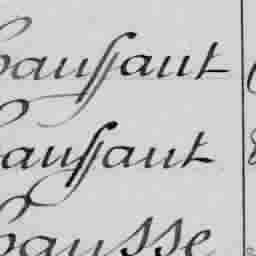 aussaut
aussaut
ausse